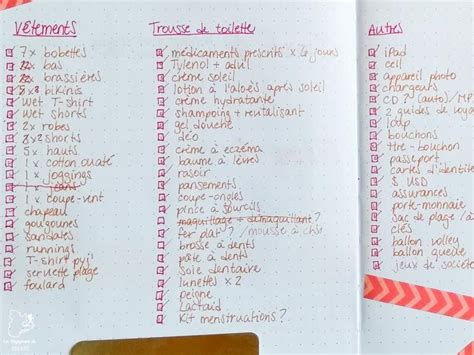 Vêtements
7x bobettes
bas
brassières
bikinis
wet T-shirt
wet shorts
2x robes
8x2 shorts
5x hauts
1x coton ouaté
1x joggings
1x coupe-vent
chapeau
gougounes
sandales
runnings
T-shirt pyj'
serviette plage
foulard
Trousse de toilette
médicaments prescrits x 6 jours
Tylenol + advil
crème soleil
lotion à l'aloès après soleil
crème hydratante
shampoing + revitalisant
gel douche
déo
crème à eczéma
baume à lèvres
rasoir
pansements
coupe-ongles
pince à sourcils
maquillage + démaquillant?
fer plat? / mousse à chx
brosse à dents
pâte à dents
soie dentaire
lunettes x2
peigne
Lactaid
Kit menstruations?
Autres
iPad
cell
appareil photo
chargeurs
CD? (auto)/MP3
2 guides de voya
loup
bouchons
tire-bouchon
passeport
cartes d'identité
$ USD
assurances
porte-monnaie
sac de plage /à
clés
ballon volley
ballon quelle
jeux de société